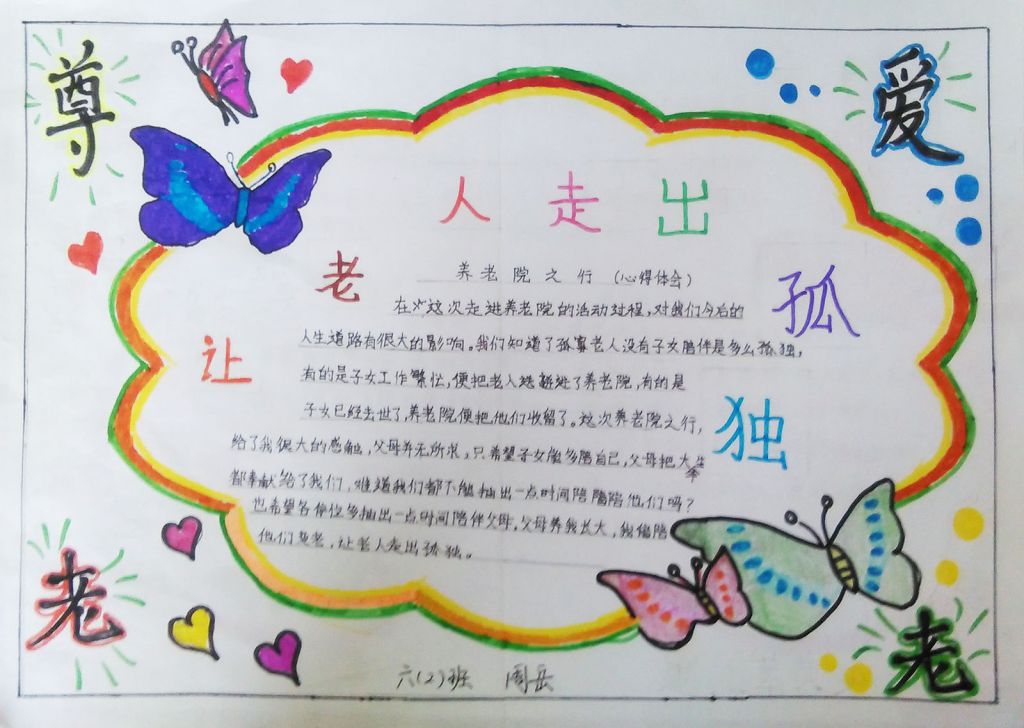 尊老
爱老
让老人走出孤独
养老院之行 (心得体会)
在这次走进养老院的活动过程,对我们今后的
人生道路有很大的影响。我们知道了孤寡老人没有子女陪伴是多么孤独,
有的是子女工作繁忙,便把老人送进了养老院,有的是
子女已经去世了,养老院便把他们收留了。这次养老院之行,
给了我很大的感触,父母并无所求,只希望子女能多陪自己,父母把大半
都奉献给了我们,难道我们都不能抽出一点时间陪陪他们吗?
也希望各位多抽出一点时间陪伴父母,父母养我长大,我陪
他们变老,让老人走出孤独。
六(2)班 周岳